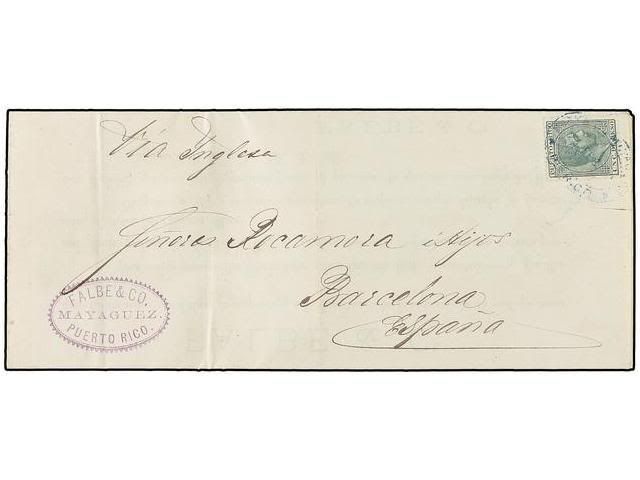 Vía Inglesa
Señores Rocamora é Hijos
Barcelona
España
FALBE & CO.
MAYAGUEZ.
PUERTO RICO.